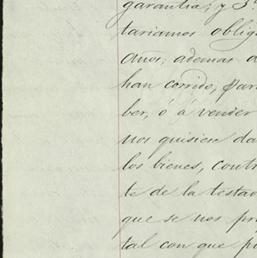 garantia; y
tariamos oblig
años; ademas a
han corrido, par
ber, ó á vender
nos quisien da
los bienes, contr
te de la testa
que se nos pr
tal con que p